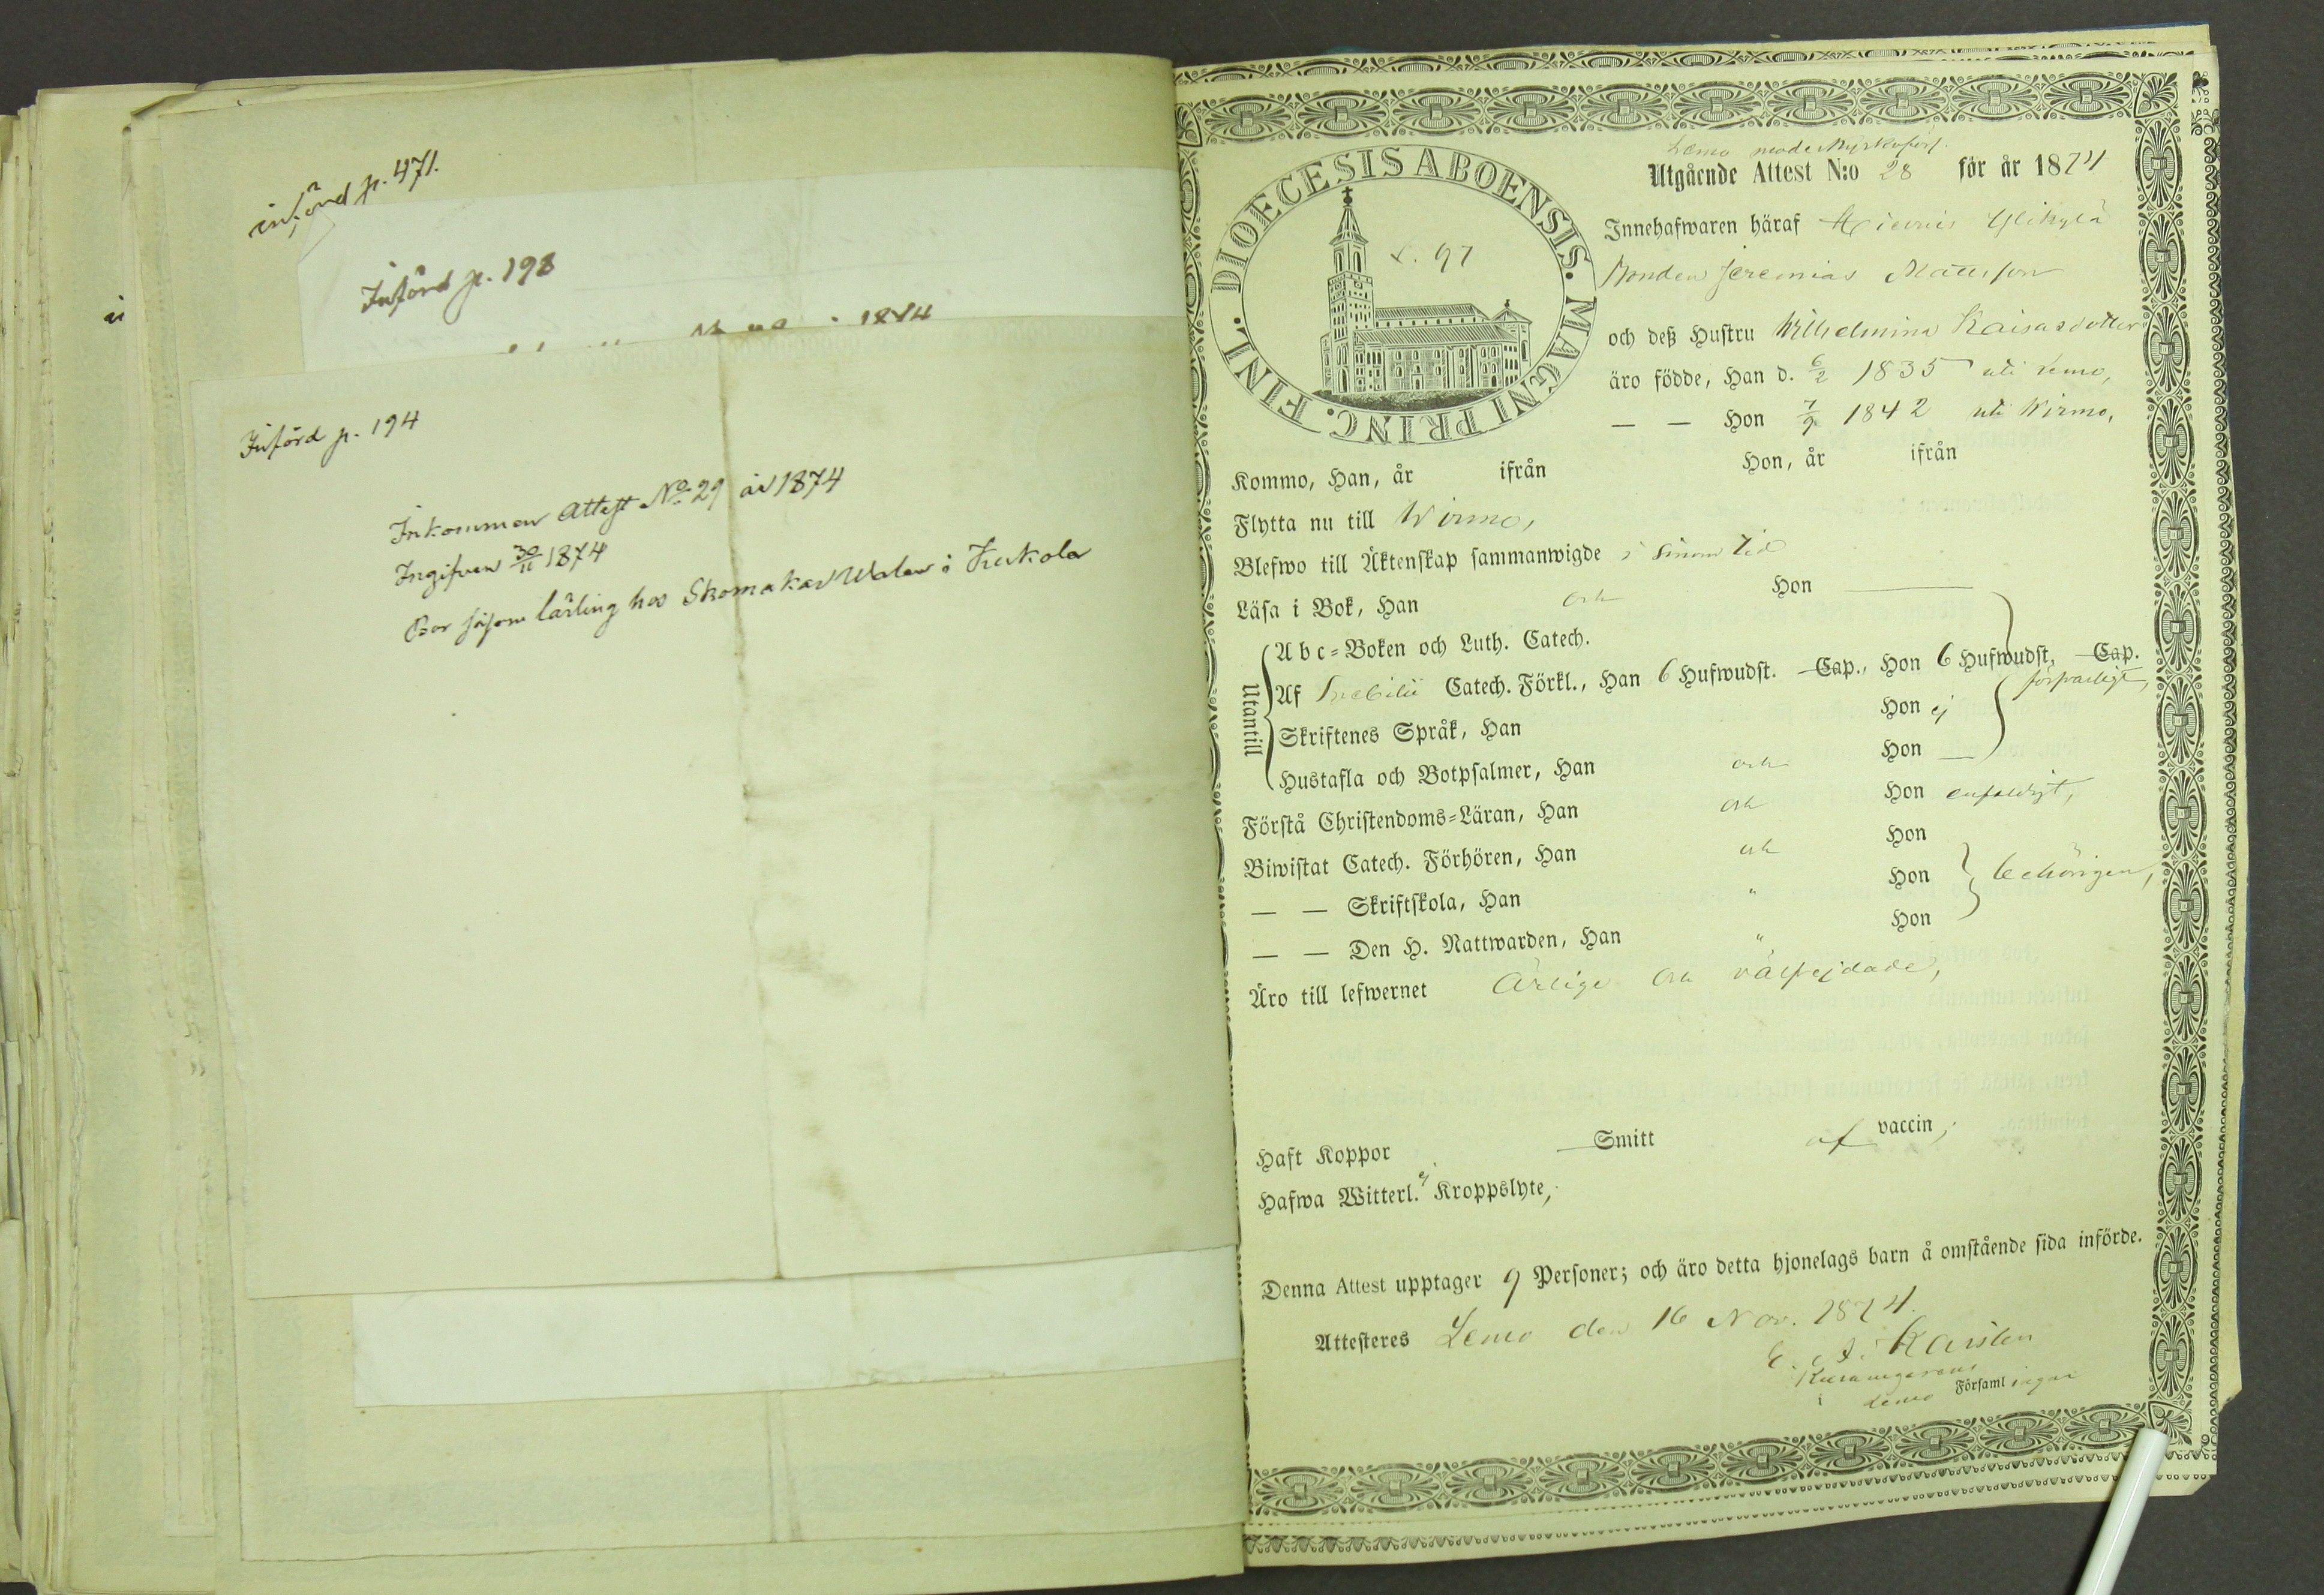 införd p. 471.
Införd p. 198
1874
Införd p. 194
Inkommen Attest No 29 år 1874
Ingifven 30/11 1874
Bor såsom lärling hos Skomakar i
DIOECESIS ABOENSIS. MAGNI PRINC. FINL.
s. 97
Lemo moderkyrkoförs.
Utgående Attest N:o 28 för år 1874
Innehafwaren häraf Ylikylä
Bonden Jeremias Mattsson
och deß Hustru Wilhelmina Kaisasdotter
äro födde, Han d. 6/2 1835 uti Lemo,
— — Hon 7/9 1842 uti Wirmo,
Kommo, Han, år ifrån Hon, år ifrån
Flytta nu till Wirmo,
Blefwo till Äktenskap sammanwigde i sinom tid
Läsa i Bok, Han och Hon —
Utantill
Abc-Boken och Luth. Catech.
Af Svebilii Catech. Förkl., Han 6 Hufwudst. Cap., Hon 6 Hufwudst. Cap.
försvarligt,
Skriftenes Språk, Han Hon ej
Hustafla och Botpsalmer, Han och Hon —
Förstå Christendoms-Läran, Han och Hon enfaldigt,
Biwistat Catech. Förhören, Han och Hon
— — Skriftskola, Han " Hon behörigen,
— — Den H. Nattwarden, Han " Hon
Äro till lefwernet Ärlige och välfrejdade,
Haft Koppor Smitt af vaccin;
Hafwa Witterl. ej Kroppslyte,
Denna Attest upptager 9 Personer; och äro detta hjonelags barn å omstående sida införde.
Attesteres Lemo den 16 Nov. 1874.
E. A. Karsten
i Lemo Församlingar